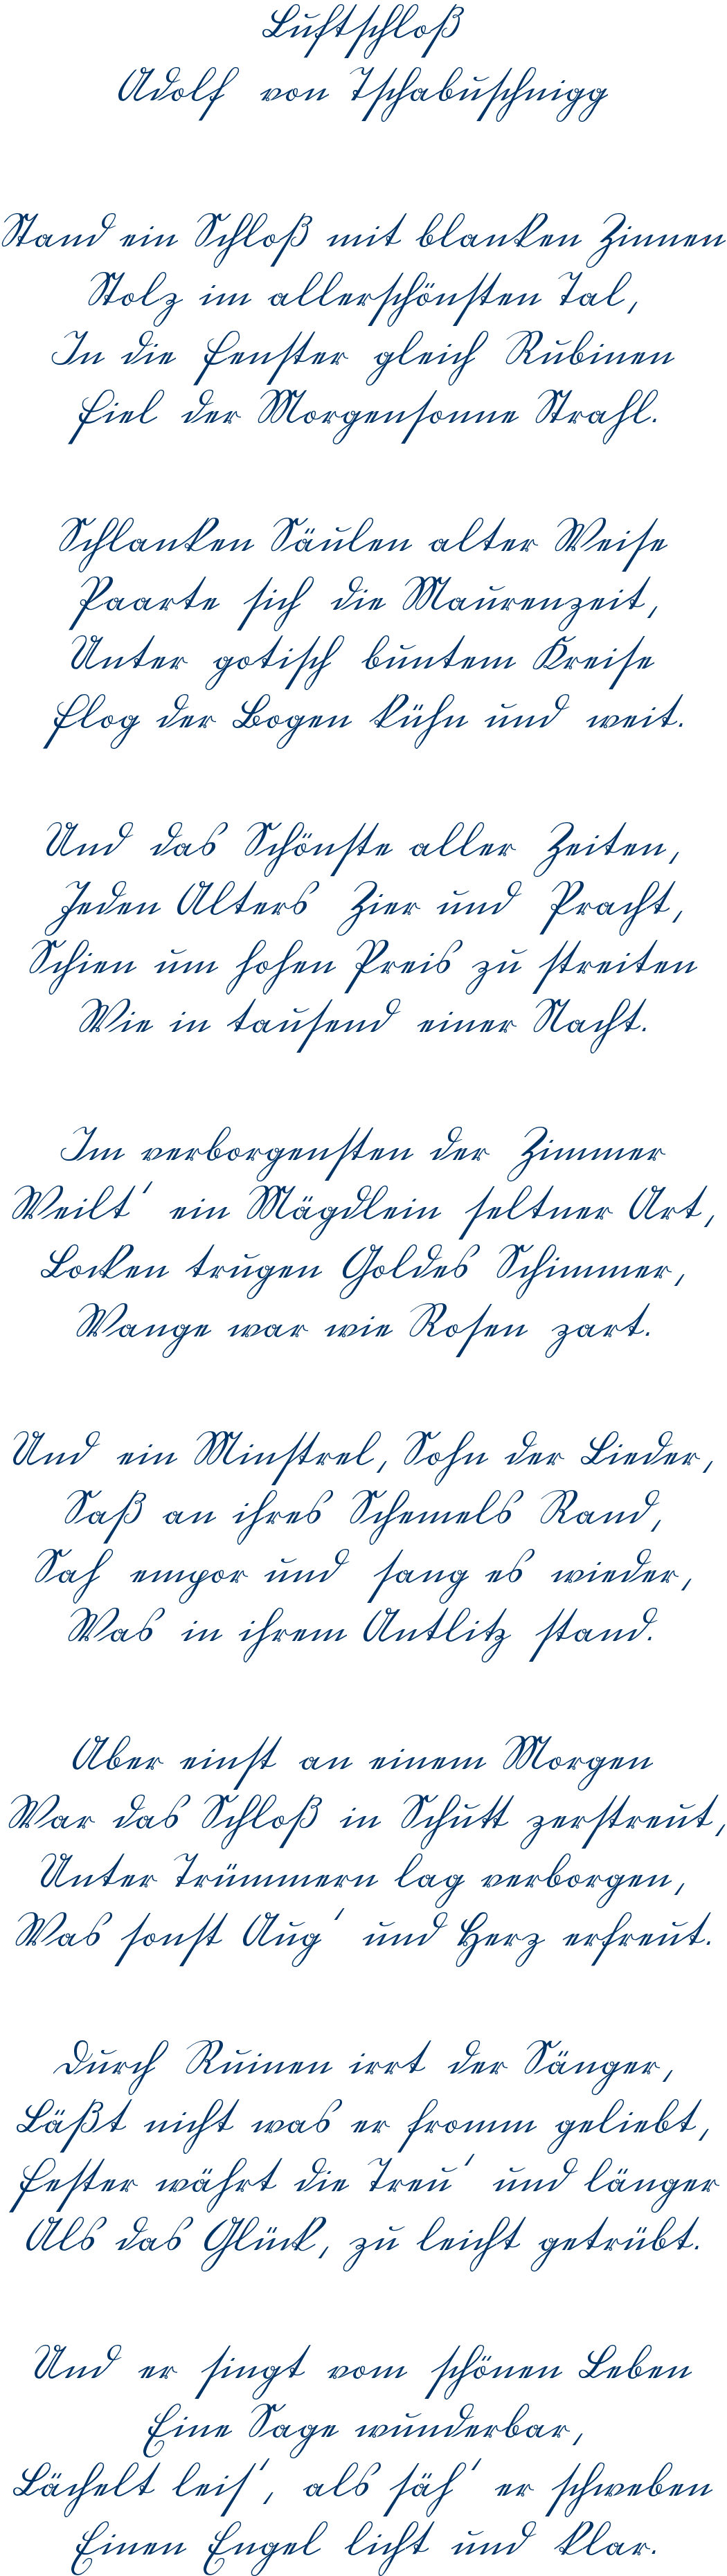 Luftschloß
Adolf von Tschabuschnigg
Stand ein Schloß mit blanken Zinnen
Stolz im allerschönsten Tal,
In die Fenster gleich Rubinen
Fiel der Morgensonne Strahl.
Schlanken Säulen alter Weise
Paarte sich die Maurenzeit,
Unter gotisch buntem Kreise
Flog der Bogen kühn und weit.
Und das Schönste aller Zeiten,
Jeden Alters Zier und Pracht,
Schien um hohen Preis zu streiten
Wie in tausend einer Nacht.
Im verborgensten der Zimmer
Weilt' ein Mägdlein seltner Art,
Locken trugen Goldes Schimmer,
Wange war wie Rosen zart.
Und ein Minstrel, Sohn der Lieder,
Saß an ihres Schemels Rand,
Sah empor und sang es wieder,
Was in ihrem Antlitz stand.
Aber einst an einem Morgen
War das Schloß in Schutt zerstreut,
Unter Trümmern lag verborgen,
Was sonst Aug' und Herz erfreut.
Durch Ruinen irrt der Sänger,
Läßt nicht was er fromm geliebt,
Fester währt die Treu' und länger
Als das Glück, zu leicht getrübt.
Und er singt vom schönen Leben
Eine Sage wunderbar,
Lächelt leis', als säh' er schweben
Einen Engel licht und klar.